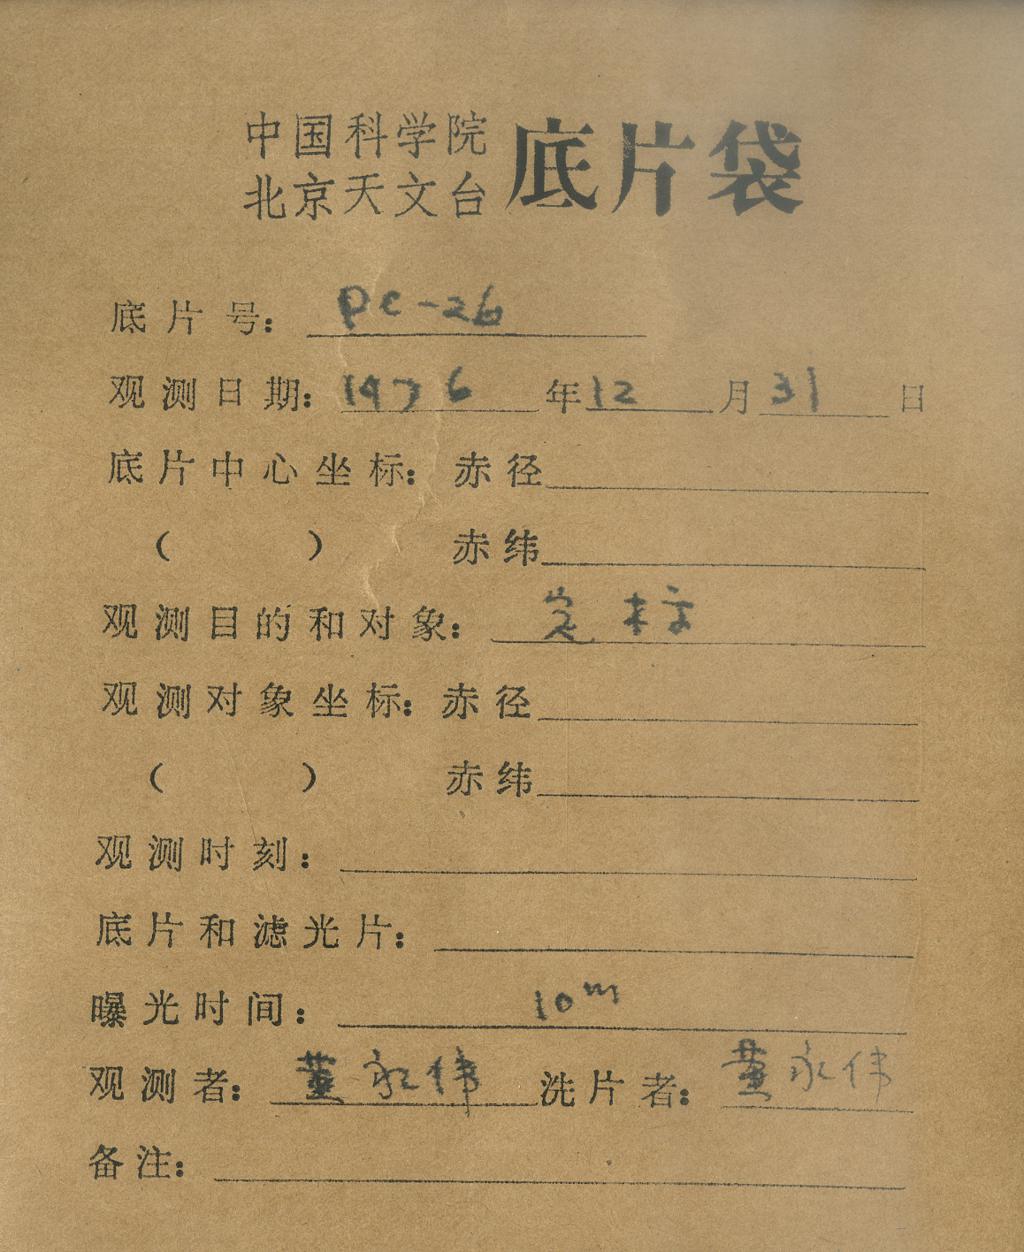 中国科学院
北京天文台
底片袋
底片号: pc-26
观测日期: 1976 年 12 月 31 日
底片中心坐标: 赤径
( ) 赤纬
观测目的和对象: 定标
观测对象坐标: 赤径
( ) 赤纬
观测时刻:
底片和滤光片:
曝光时间: 10m
观测者: 董永伟 洗片者: 董永伟
备注: